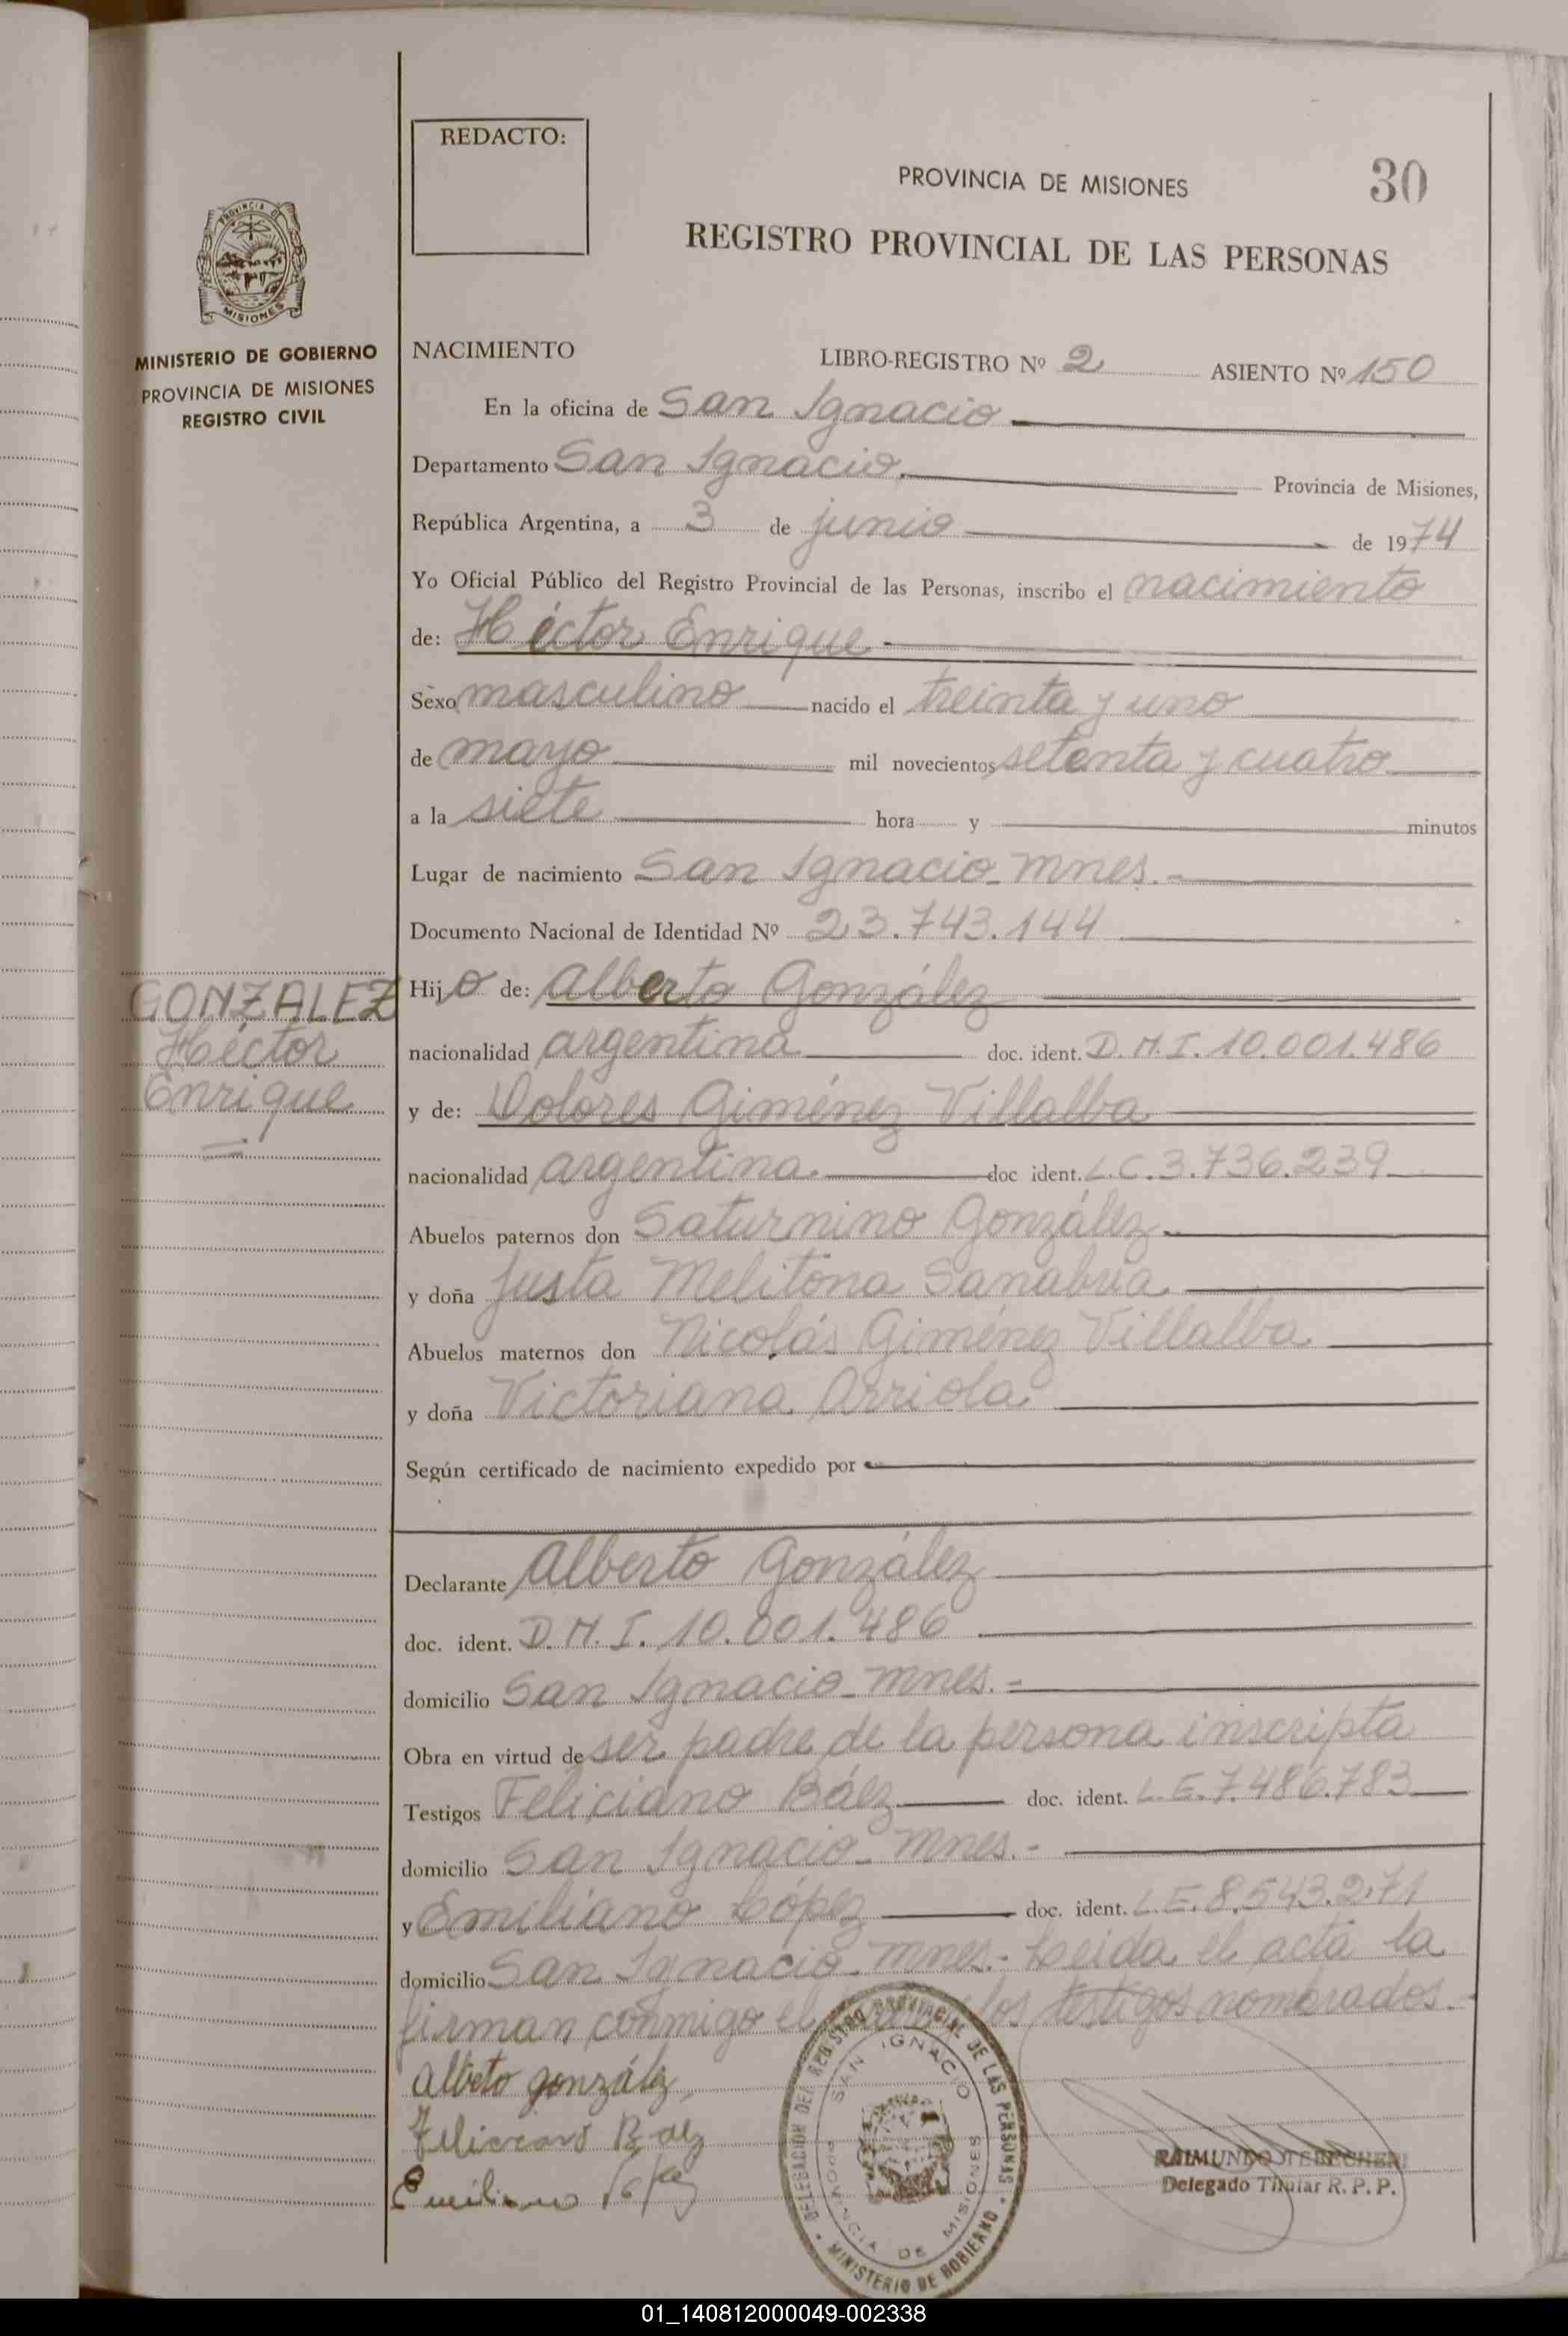 REDACTO:
PROVINCIA DE MISIONES
30
REGISTRO PROVINCIAL DE LAS PERSONAS
PROVINCIA DE
MISIONES
MINISTERIO DE GOBIERNO
PROVINCIA DE MISIONES
REGISTRO CIVIL
NACIMIENTO LIBRO-REGISTRO Nº 2 ASIENTO Nº 150
En la oficina de San Ignacio
Departamento San Ignacio Provincia de Misiones,
República Argentina, a 3 de junio de 1974
Yo Oficial Público del Registro Provincial de las Personas, inscribo el nacimiento
de: Héctor Enrique
Sexo masculino nacido el treinta y uno
de mayo mil novecientos setenta y cuatro
a la siete hora y minutos
Lugar de nacimiento San Ignacio - Mnes.-
Documento Nacional de Identidad Nº 23.743.144
GONZALEZ
Héctor
Enrique
Hijo de: Alberto González
nacionalidad argentina doc. ident. D.N.I. 10.001.486
y de: Dolores Giménez Villalba
nacionalidad argentina. doc ident. L.C. 3.736.239
Abuelos paternos don Saturnino González
y doña Justa Melitona Sanabria
Abuelos maternos don Nicolás Giménez Villalba
y doña Victoriana Arriola
Según certificado de nacimiento expedido por
Declarante Alberto González
doc. ident. D.N.I. 10.001.486
domicilio San Ignacio - Mnes.-
Obra en virtud de ser padre de la persona inscripta
Testigos Feliciano Báez doc. ident. L.E. 7.486.783
domicilio San Ignacio - Mnes.-
y Emiliano López doc. ident. L.E. 8.543.271
domicilio San Ignacio - Mnes.- Leida el acta la
firman conmigo el los testigos nombrados.-
Albeto gonzález
Feliciano Baez
Emiliano López
DELEGACION DEL REGISTRO PROVINCIAL DE LAS PERSONAS
SAN IGNACIO
PROVINCIA DE MISIONES
MINISTERIO DE GOBIERNO
RAIMUNDO
Delegado Titular R. P. P.
01_140812000049-002338